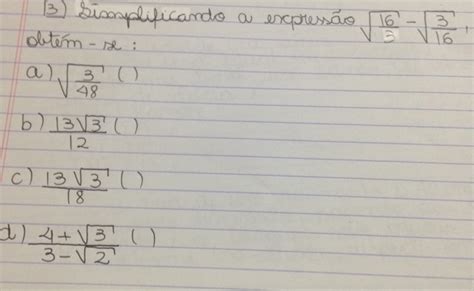 3) Simplificando a expressão √16/3 - √3/16,
obtém-se:
a) √3/48 ( )
b) 13√3/12 ( )
c) 13√3/18 ( )
d) 4+√3/3-√2 ( )